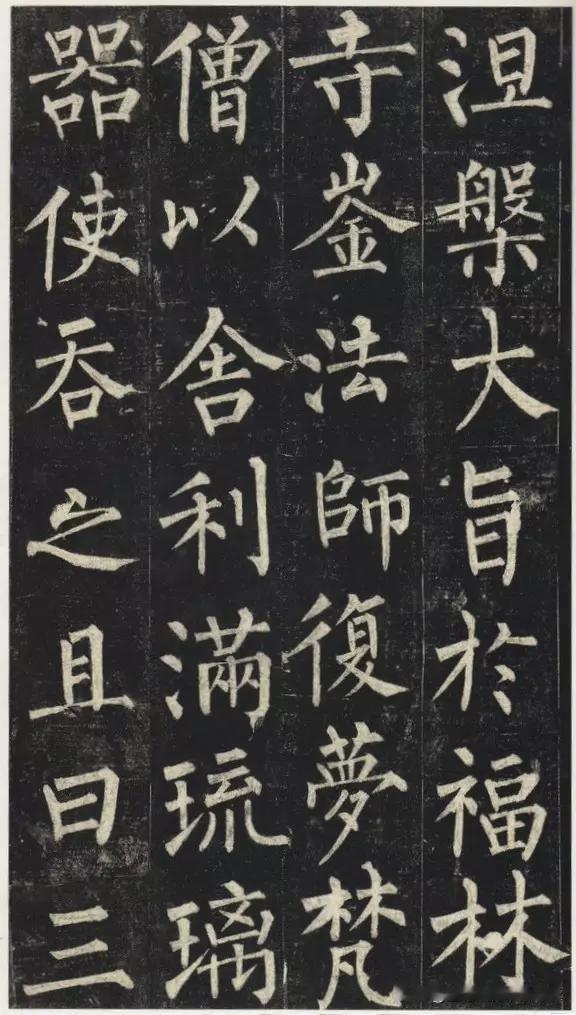 涅槃大旨於福林
寺崟法師復夢梵
僧以舎利滿琉璃
器使吞之且曰三